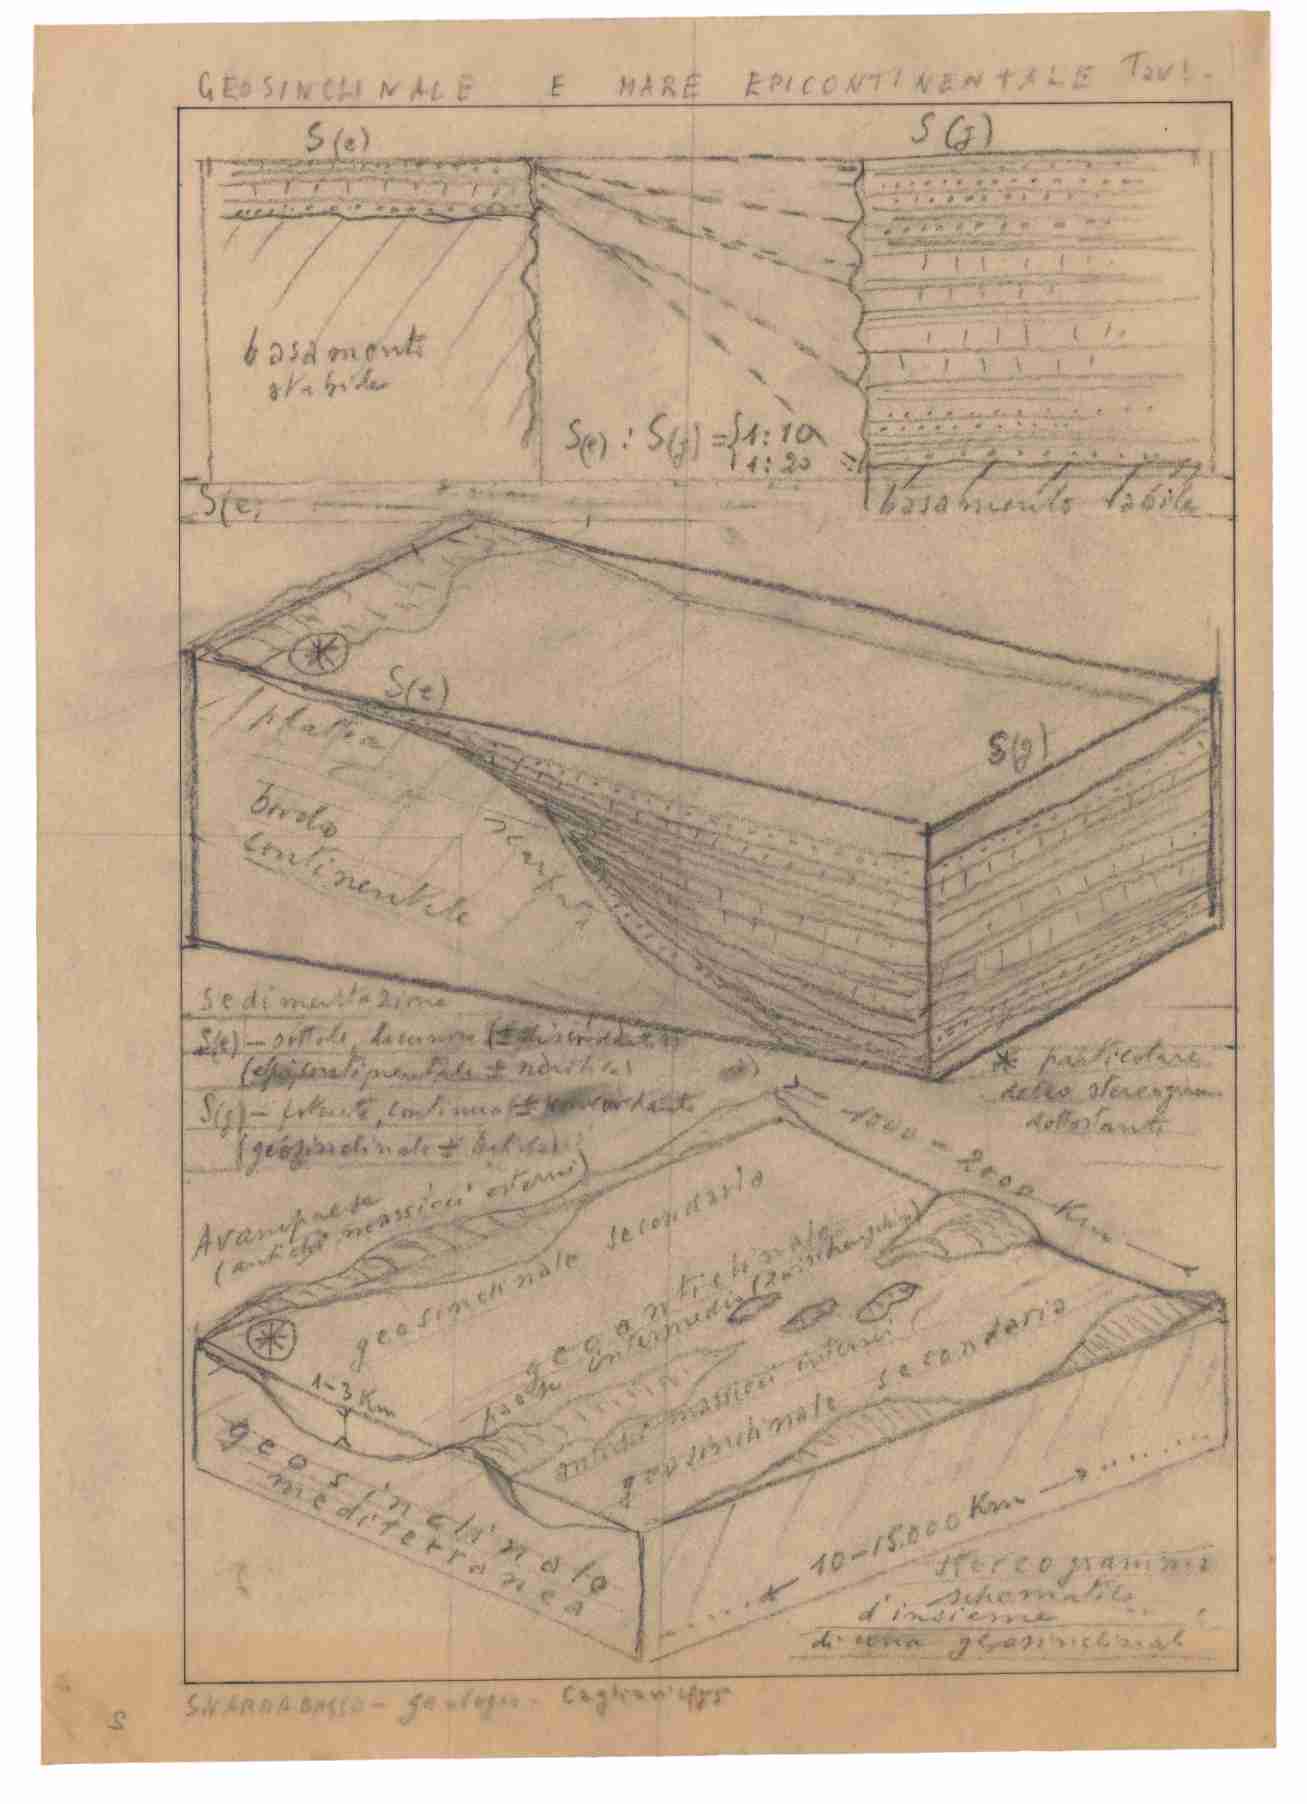 GEOSINCLINALE E MARE EPICONTINENTALE Tav.
S(e)
S(g)
basamento
stabile
S(e) : S(g) = { 1:10
1:20
basamento labile
S(e)
S(e)
S(g)
platea
bordo
continentale
scarpata
Sedimentazione
S(e) — sottile, lacunosa (± discordante)
(epicontinentale ± neritica)
S(g) — potente, continua (± concordante
(geosinclinale ± batiale)
* particolare
dello stereogramma
sottostante
1000 - 2000 Km
Avampaese
(antichi massicci esterni)
geosinclinale secondaria
geoanticlinale
paese intermedio (zwischengebirge)
antichi massicci interni
geosinclinale secondaria
1-3 Km
geosinclinale
mediterranea
10-15.000 Km
Stereogramma
schematico
d'insieme
di una geosinclinale
S. VARDABASSO - Geologia - Cagliari
S